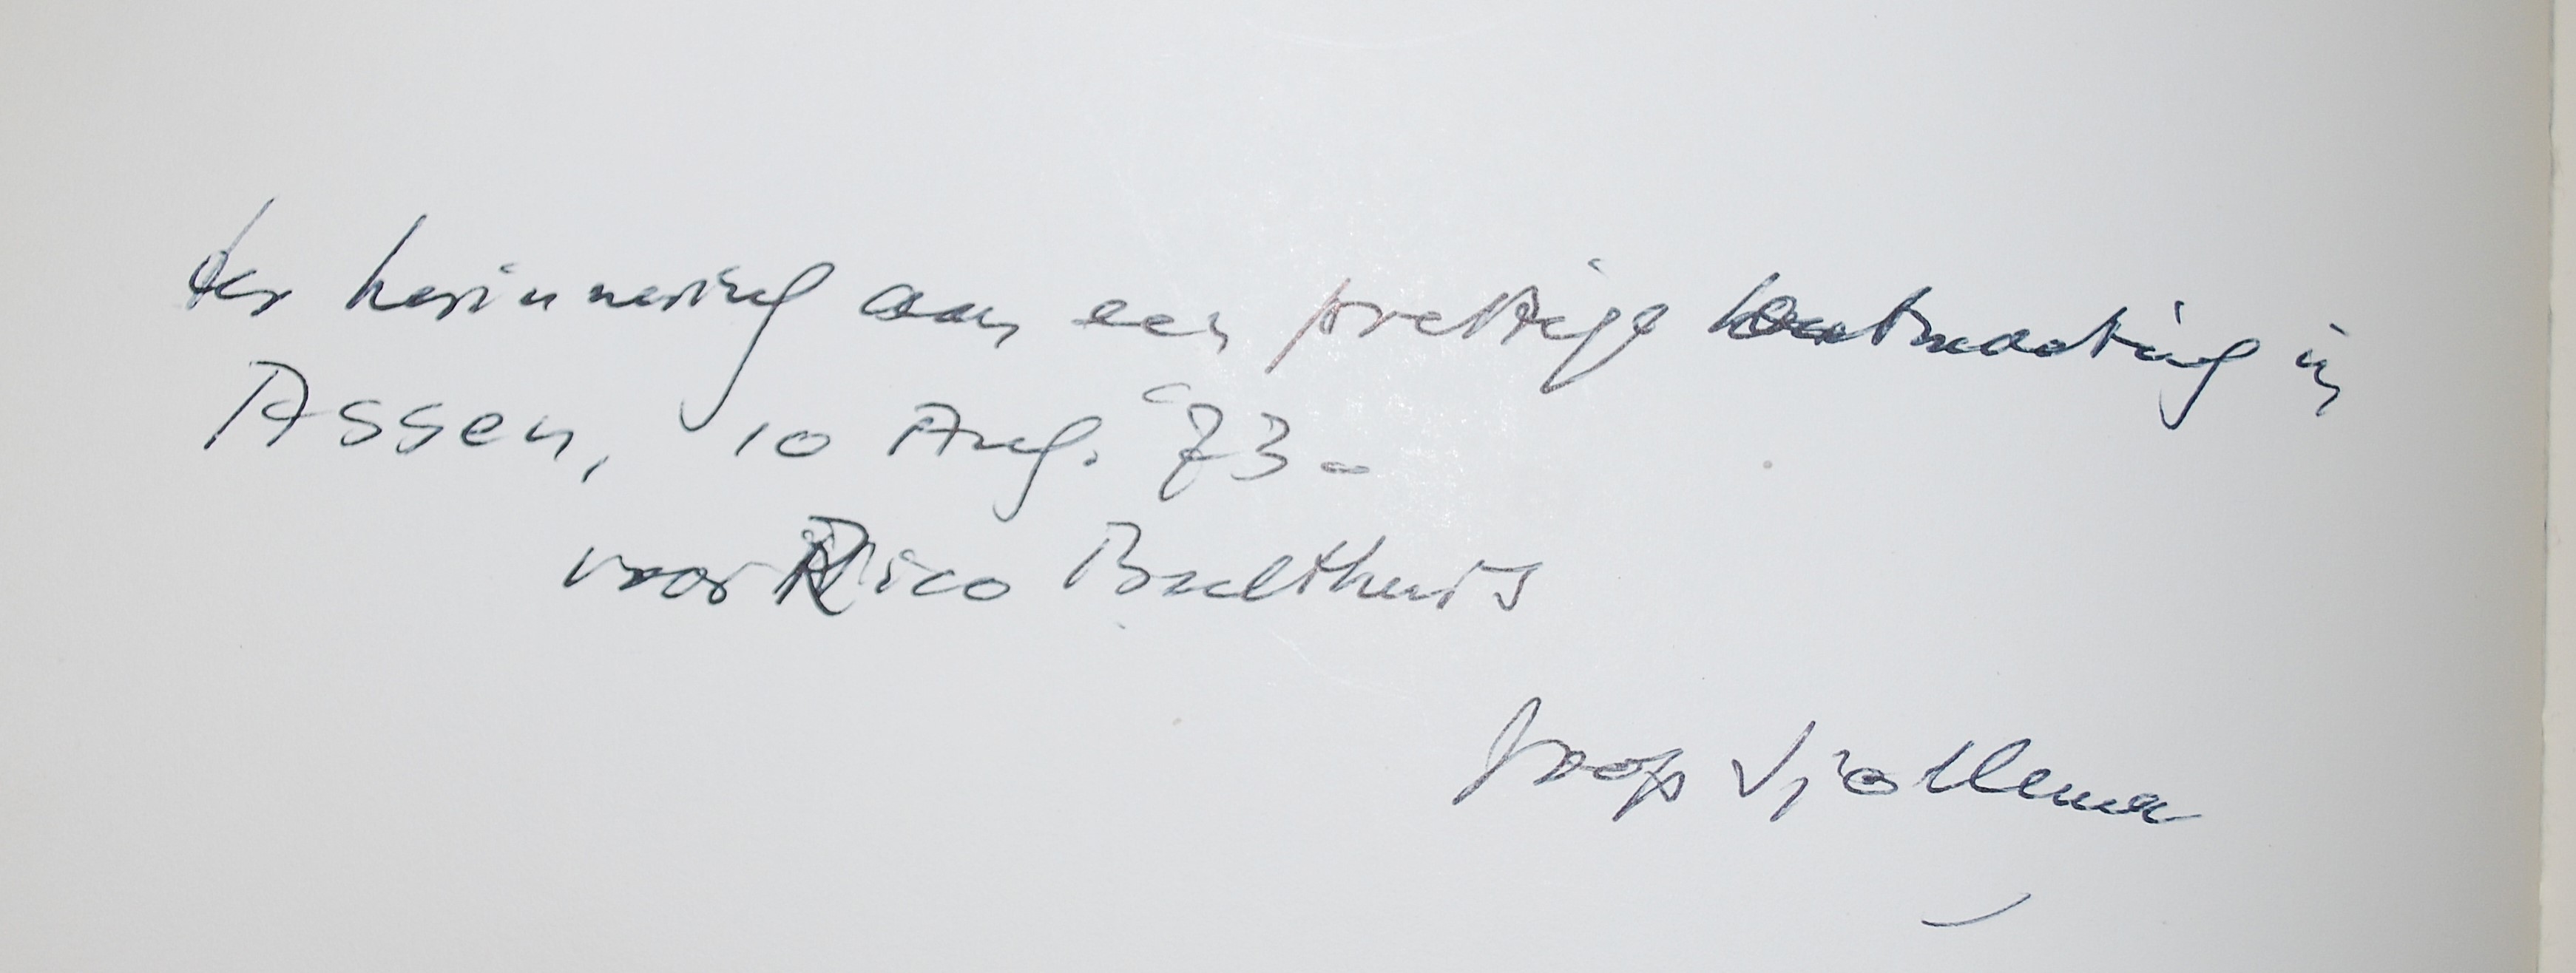 ter herinnering aan een prettige ontmoeting in
Assen, 10 Aug. '73 -
voor Rico Bulthuis
Joop Sjollema